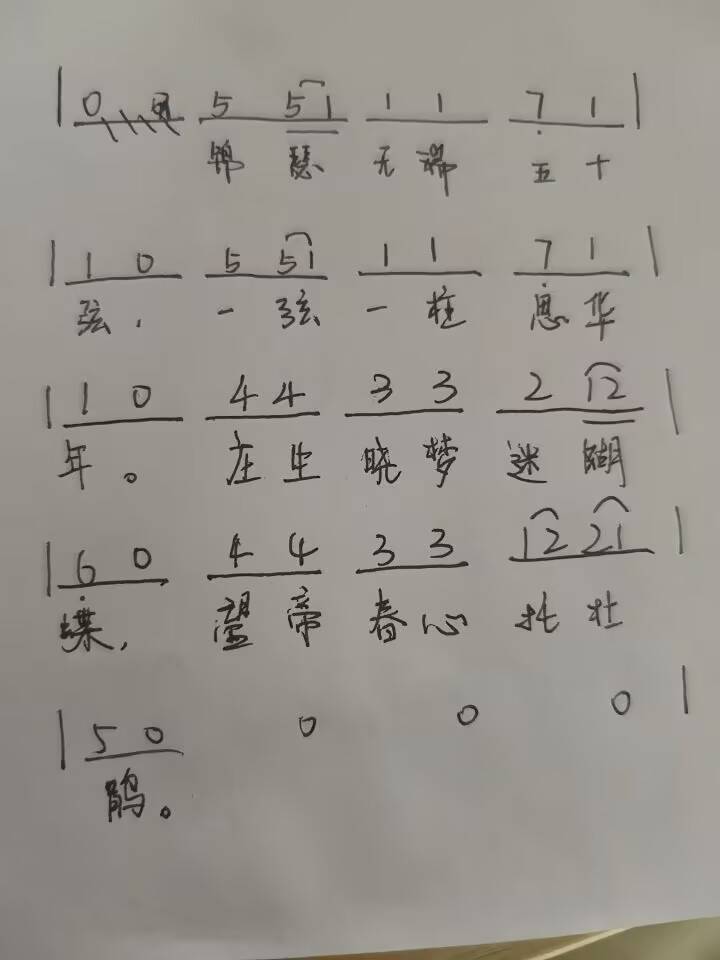 | 0 5 51 1 1 7 1 |
锦 瑟 无 端 五 十
| 1 0 5 51 1 1 7 1 |
弦, 一 弦 一 柱 思 华
| 1 0 4 4 3 3 2 12 |
年。 庄 生 晓 梦 迷 蝴
| 6 0 4 4 3 3 12 21 |
蝶, 望 帝 春 心 托 杜
| 5 0 0 0 0 |
鹃。